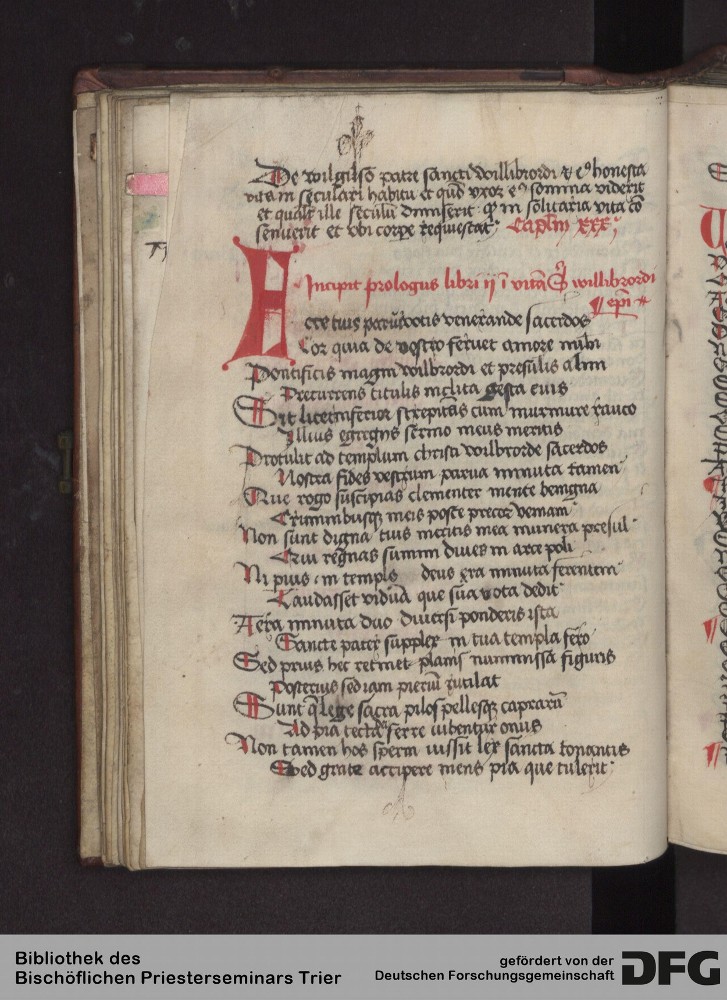 De wilgilso patre sancti willibrordi et eꝰ honesta
vita in seculari habitu et quod vxor eꝰ somnia viderit
et qualiter ille seculum dimiserit et in solitaria vita co
senuerit et vbi corpore requiescat. Caplm XXX.
Incipit prologus libri ij i vita S willibrordi
epi
A
ere tuis votis venerande sacerdos
Cor quia de vostro feruet amore mihi
Pontificis magni wilbrordi et presulis almi
Precurrens titulis inclita gesta euis
Sit licet inferior strepitans cum murmure rauco
Illius egregiis sermo meus meritis
Protulit ad templum christi wilbrorde sacerdos
Nostra fides vestrum parua minuta tamen
Que rogo suscipias clementer mente benigna
Criminibusq meis posce precor veniam
Non sunt digna tuis meritis mea munera presul
Qui regnas summi diues in arce poli
Ni pius in templo deus era minuta ferentem
Laudasset viduam que sua vota dedit
Aera minuta duo diuersi ponderis ista
Sancte pater supplex in tua templa fero
Sed prius hec retinet planis numissa figuris
Posterius sed iam rutilat
Sunt lege sacra pilos pellesq caprarum
Ad pia tecta ferre iubentur onus
Non tamen hos spernit iussit lex sancta tonantis
Sed grate accipere mens pia que tulerit
Bibliothek des
Bischöflichen Priesterseminars Trier
gefördert von der
Deutschen Forschungsgemeinschaft
DFG